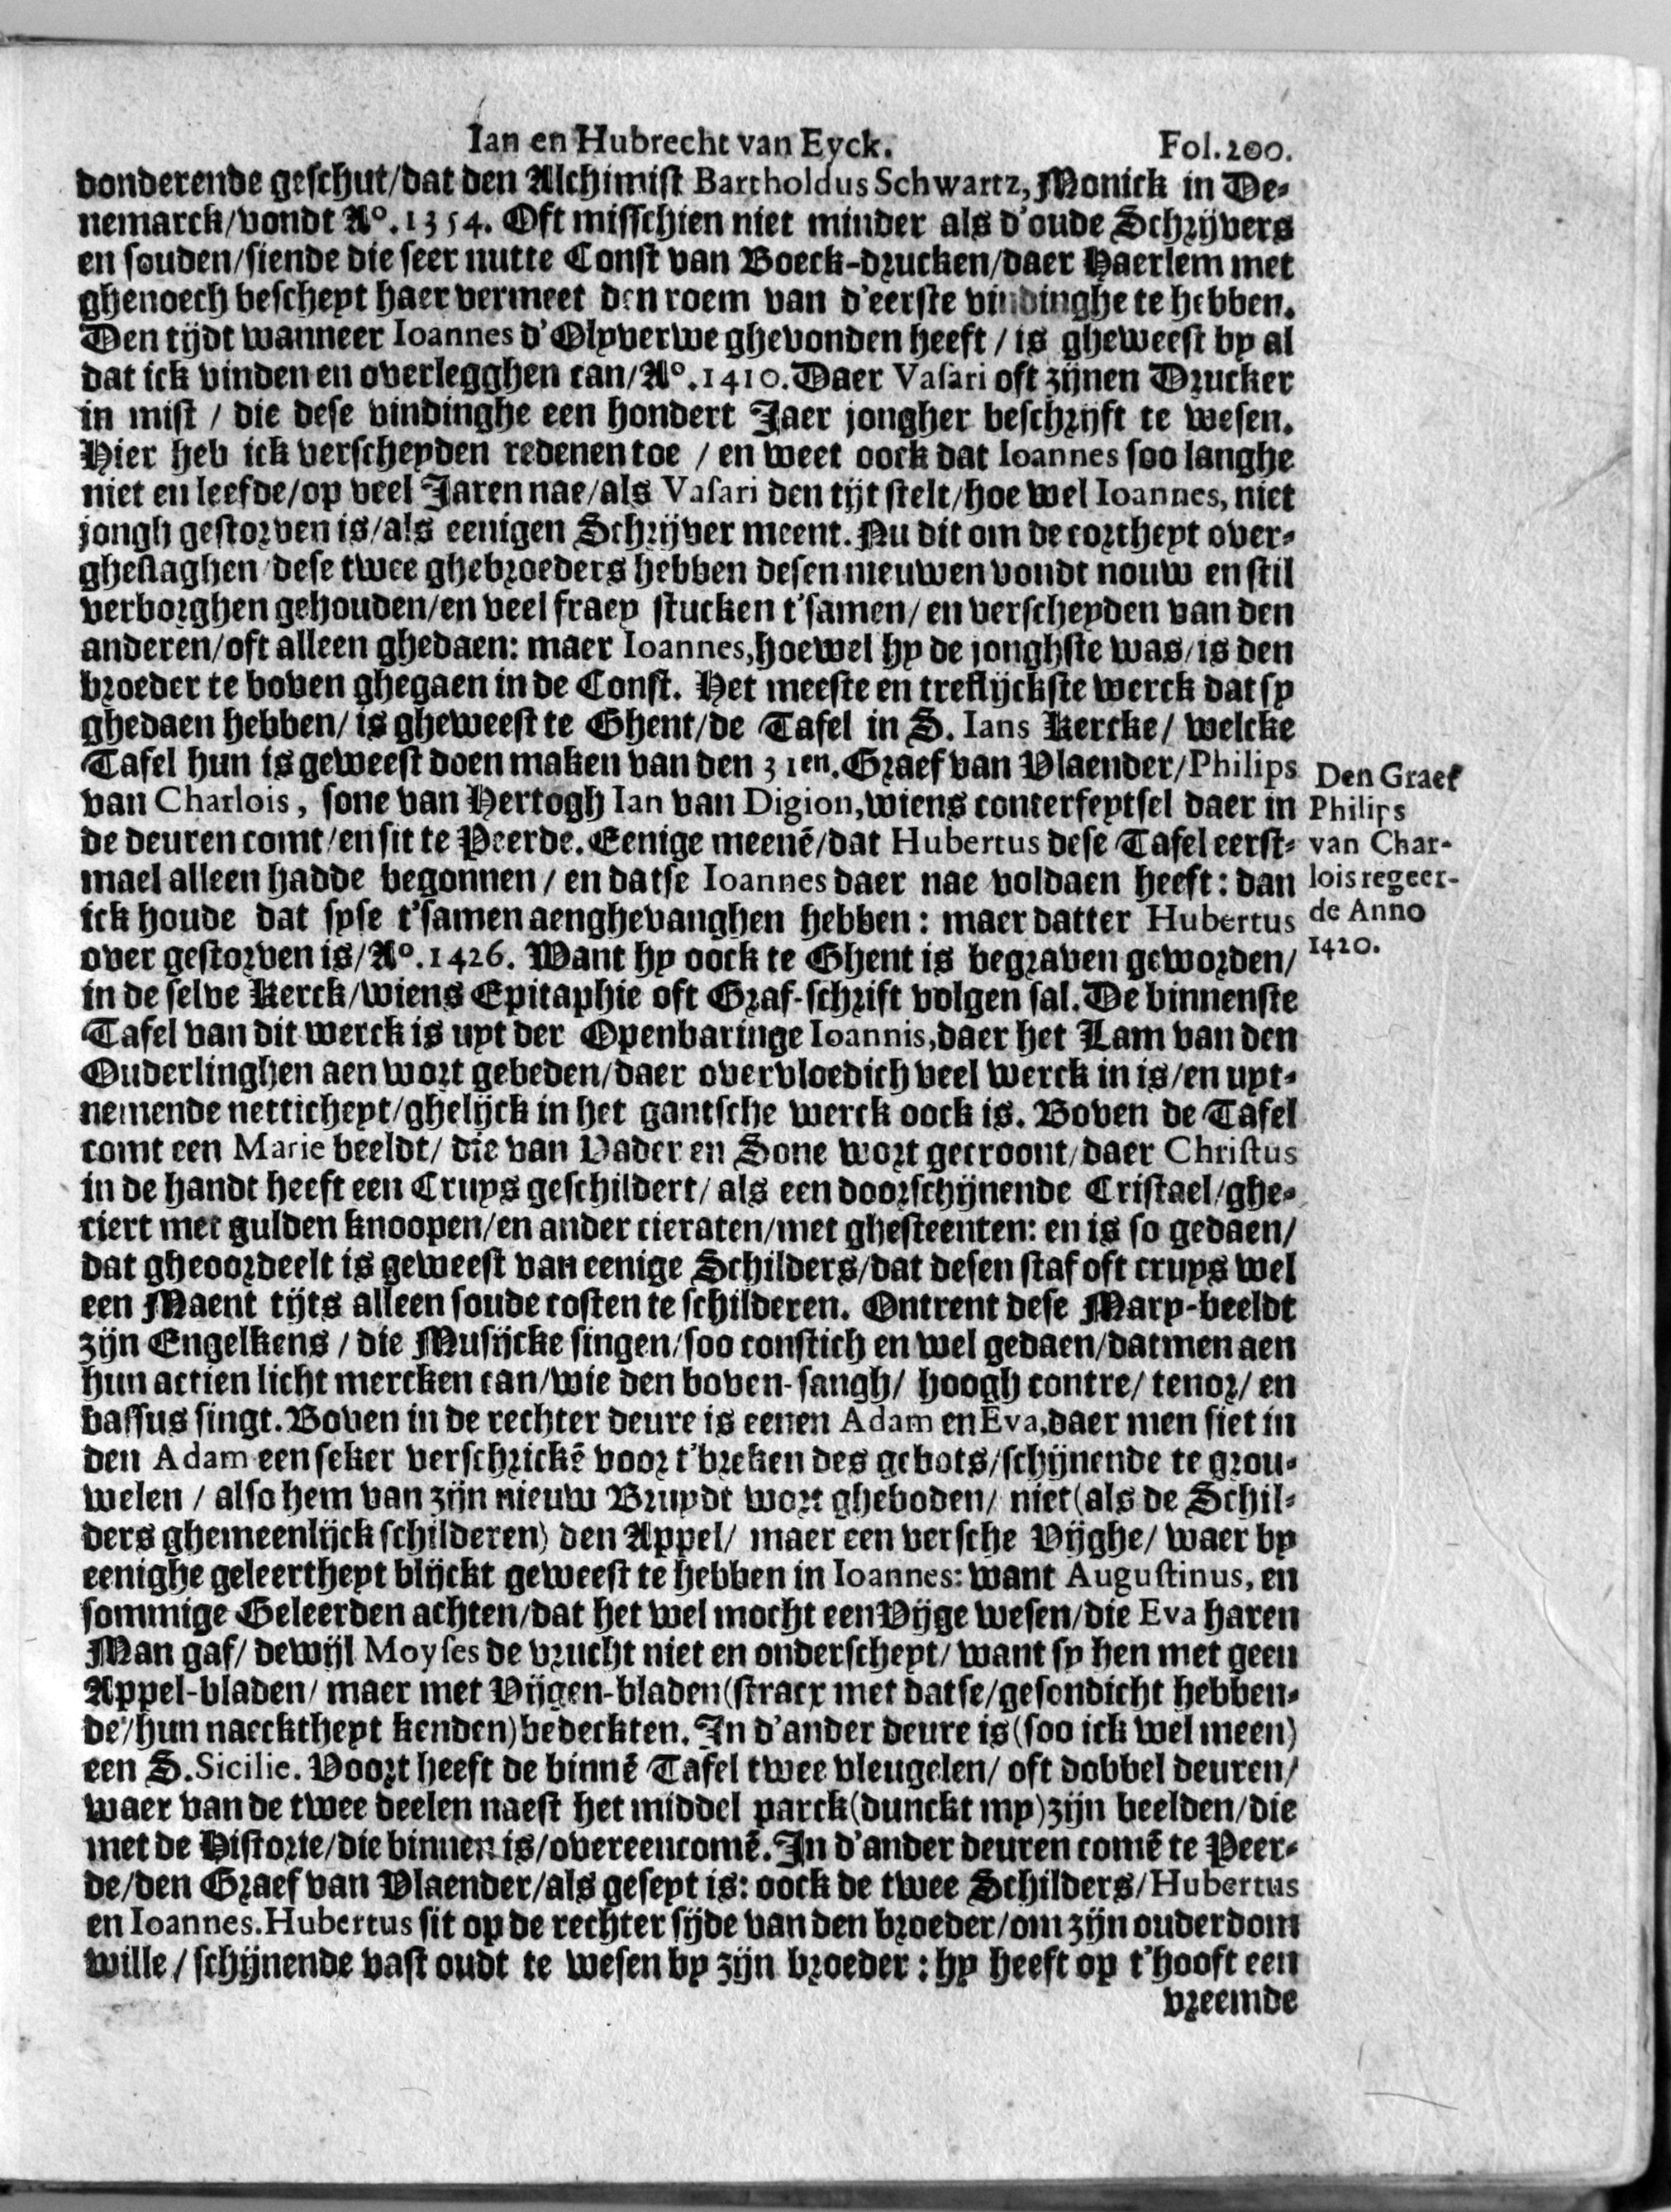 Ian en Hubrecht van Eyck. Fol.200.
donderende geschut/dat den Alchimist Bartholdus Schwartz, Monick in De-
nemarck/vondt Aº.1354. Oft misschien niet minder als d'oude Schrijvers
en souden/siende die seer nutte Const van Boeck-drucken/daer Haerlem met
ghenoech bescheyt haer vermeet den roem van d'eerste vindinghe te hebben.
Den tijdt wanneer Ioannes d'Olyverwe ghevonden heeft / is gheweest by al
dat ick vinden en overlegghen can/Aº.1410. Daer Vasari oft zijnen Drucker
in mist / die dese vindinghe een hondert Jaer jongher beschrijft te wesen.
Hier heb ick verscheyden redenen toe / en weet oock dat Ioannes soo langhe
niet en leefde/op veel Jaren nae/als Vasari den tijt stelt/hoe wel Ioannes, niet
jongh gestorven is/als eenigen Schrijver meent. Nu dit om de cortheyt over-
gheslaghen/dese twee ghebroeders hebben desen nieuwen vondt nouw en stil
verborghen gehouden/en veel fraey stucken t'samen/en verscheyden van den
anderen/oft alleen ghedaen: maer Ioannes, hoewel hy de jonghste was/is den
broeder te boven ghegaen in de Const. Het meeste en treflijckste werck dat sy
ghedaen hebben/ is gheweest te Ghent/de Tafel in S. Ians Kercke/ welcke
Tafel hun is geweest doen maken van den 31en. Graef van Vlaender/Philips
van Charlois, sone van Hertogh Ian van Digion, wiens conterfeytsel daer in
de deuren comt/en sit te Peerde. Eenige meenē/dat Hubertus dese Tafel eerst-
mael alleen hadde begonnen / en datse Ioannes daer nae voldaen heeft: dan
ick houde dat syse t'samen aenghevanghen hebben: maer datter Hubertus
over gestorven is/Aº.1426. Want hy oock te Ghent is begraven geworden/
in de selve Kerck/wiens Epitaphie oft Graf-schrift volgen sal. De binnenste
Tafel van dit werck is uyt der Openbaringe Ioannis, daer het Lam van den
Ouderlinghen aen wort gebeden/daer overvloedich veel werck in is/en uyt-
nemende netticheyt/ghelijck in het gantsche werck oock is. Boven de Tafel
comt een Marie beeldt/ die van Vader en Sone wort gecroont/daer Christus
in de handt heeft een Cruys geschildert/ als een doorschijnende Cristael/ghe-
ciert met gulden knoopen/en ander cieraten/met ghesteenten: en is so gedaen/
dat gheoordeelt is geweest van eenige Schilders/dat desen staf oft cruys wel
een Maent tijts alleen soude costen te schilderen. Ontrent dese Mary-beeldt
zijn Engelkens / die Musijcke singen/soo constich en wel gedaen/datmen aen
hun actien licht mercken can/wie den boven-sangh/ hoogh contre/ tenor/ en
bassus singt. Boven in de rechter deure is eenen Adam en Eva, daer men siet in
den Adam een seker verschrickē voor t'breken des gebots/schijnende te grou-
welen / also hem van zijn nieuw Bruydt wort gheboden/ niet (als de Schil-
ders ghemeenlijck schilderen) den Appel/ maer een versche Vijghe/ waer by
eenighe geleertheyt blijckt geweest te hebben in Ioannes: want Augustinus, en
sommige Geleerden achten/dat het wel mocht een Vijge wesen/die Eva haren
Man gaf/ dewijl Moyses de vrucht niet en onderscheyt/ want sy hen met geen
Appel-bladen/ maer met Vijgen-bladen (stracx met datse/gesondicht hebben-
de/hun naecktheyt kenden) bedeckten. In d'ander deure is (soo ick wel meen)
een S. Sicilie. Voort heeft de binnē Tafel twee vleugelen/ oft dobbel deuren/
waer van de twee deelen naest het middel parck (dunckt my) zijn beelden/die
met de Historie/die binnen is/overeencomē. In d'ander deuren comē te Peer-
de/den Graef van Vlaender/als geseyt is: oock de twee Schilders/Hubertus
en Ioannes. Hubertus sit op de rechter sijde van den broeder/om zijn ouderdom
wille / schijnende vast oudt te wesen by zijn broeder: hy heeft op t'hooft een
vreemde
Den Graef
Philips
van Char-
lois regeer-
de Anno
1420.